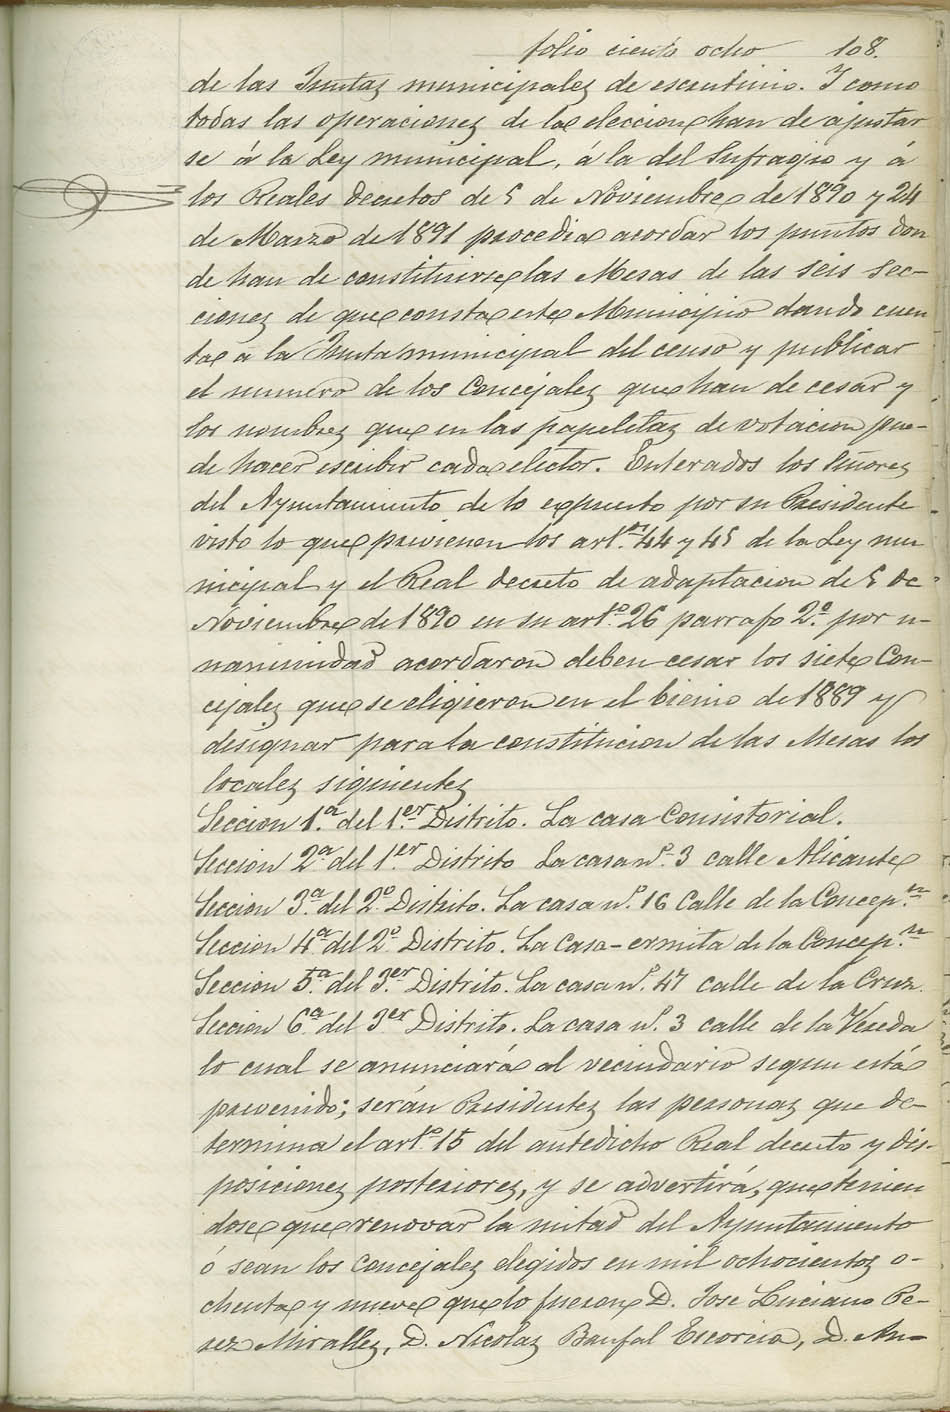 folio ciento ocho 108.
de las Juntas municipales de escrutinio. Y como
todas las operaciones de la eleccion han de ajustar
se á la Ley municipal, á la del Sufragio y á
los Reales decretos de 5 de Noviembre de 1890 y 24
de Marzo de 1891 procedia acordar los puntos don
de han de constituirse las Mesas de las seis Sec-
ciones de que consta este Municipio dando cuen
ta a la Junta municipal del censo y publicar
el numero de los Concejales que han de cesar y
los nombres que en las papeletas de votacion pue-
de hacer escribir cada elector. Enterados los Señores
del Ayuntamiento de lo expuesto por su Presidente
visto lo que previenen los art.s 44 y 45 de la Ley mu
nicipal y el Real decreto de adaptacion de 5 de
Noviembre de 1890 en su art.o 26 parrafo 2.o por u-
nanimidad acordaron deben cesar los siete Con-
cejales que se eligieron en el bienio de 1889 y
designar para la constitucion de las Mesas los
locales siguientes
Seccion 1.a del 1.er Distrito. La casa Consistorial.
Seccion 2.a del 1.er Distrito La casa n.o 3 calle Alicante
Seccion 3.a del 2.o Distrito. La casa n.o 16 Calle de la Concep.n
Seccion 4.a del 2.o Distrito. La Casa-ermita de la Concep.n
Seccion 5.a del 3.er Distrito. La casa n.o 47 calle de la Cruz.
Seccion 6.a del 3.er Distrito. La casa n.o 3 calle de la Vereda
lo cual se anunciará al vecindario segun está
prevenido; serán Presidentes las personas que de-
termina el art.o 15 del antedicho Real decreto y dis-
posiciones posteriores, y se advertirá, que tenien
dose que renovar la mitad del Ayuntamiento
ó sean los concejales elegidos en mil ochocientos o-
chenta y nueve que lo fueron D. Jose Luciano Pe-
rez Miralles, D. Nicolas Banfal Escorcia, D. An-